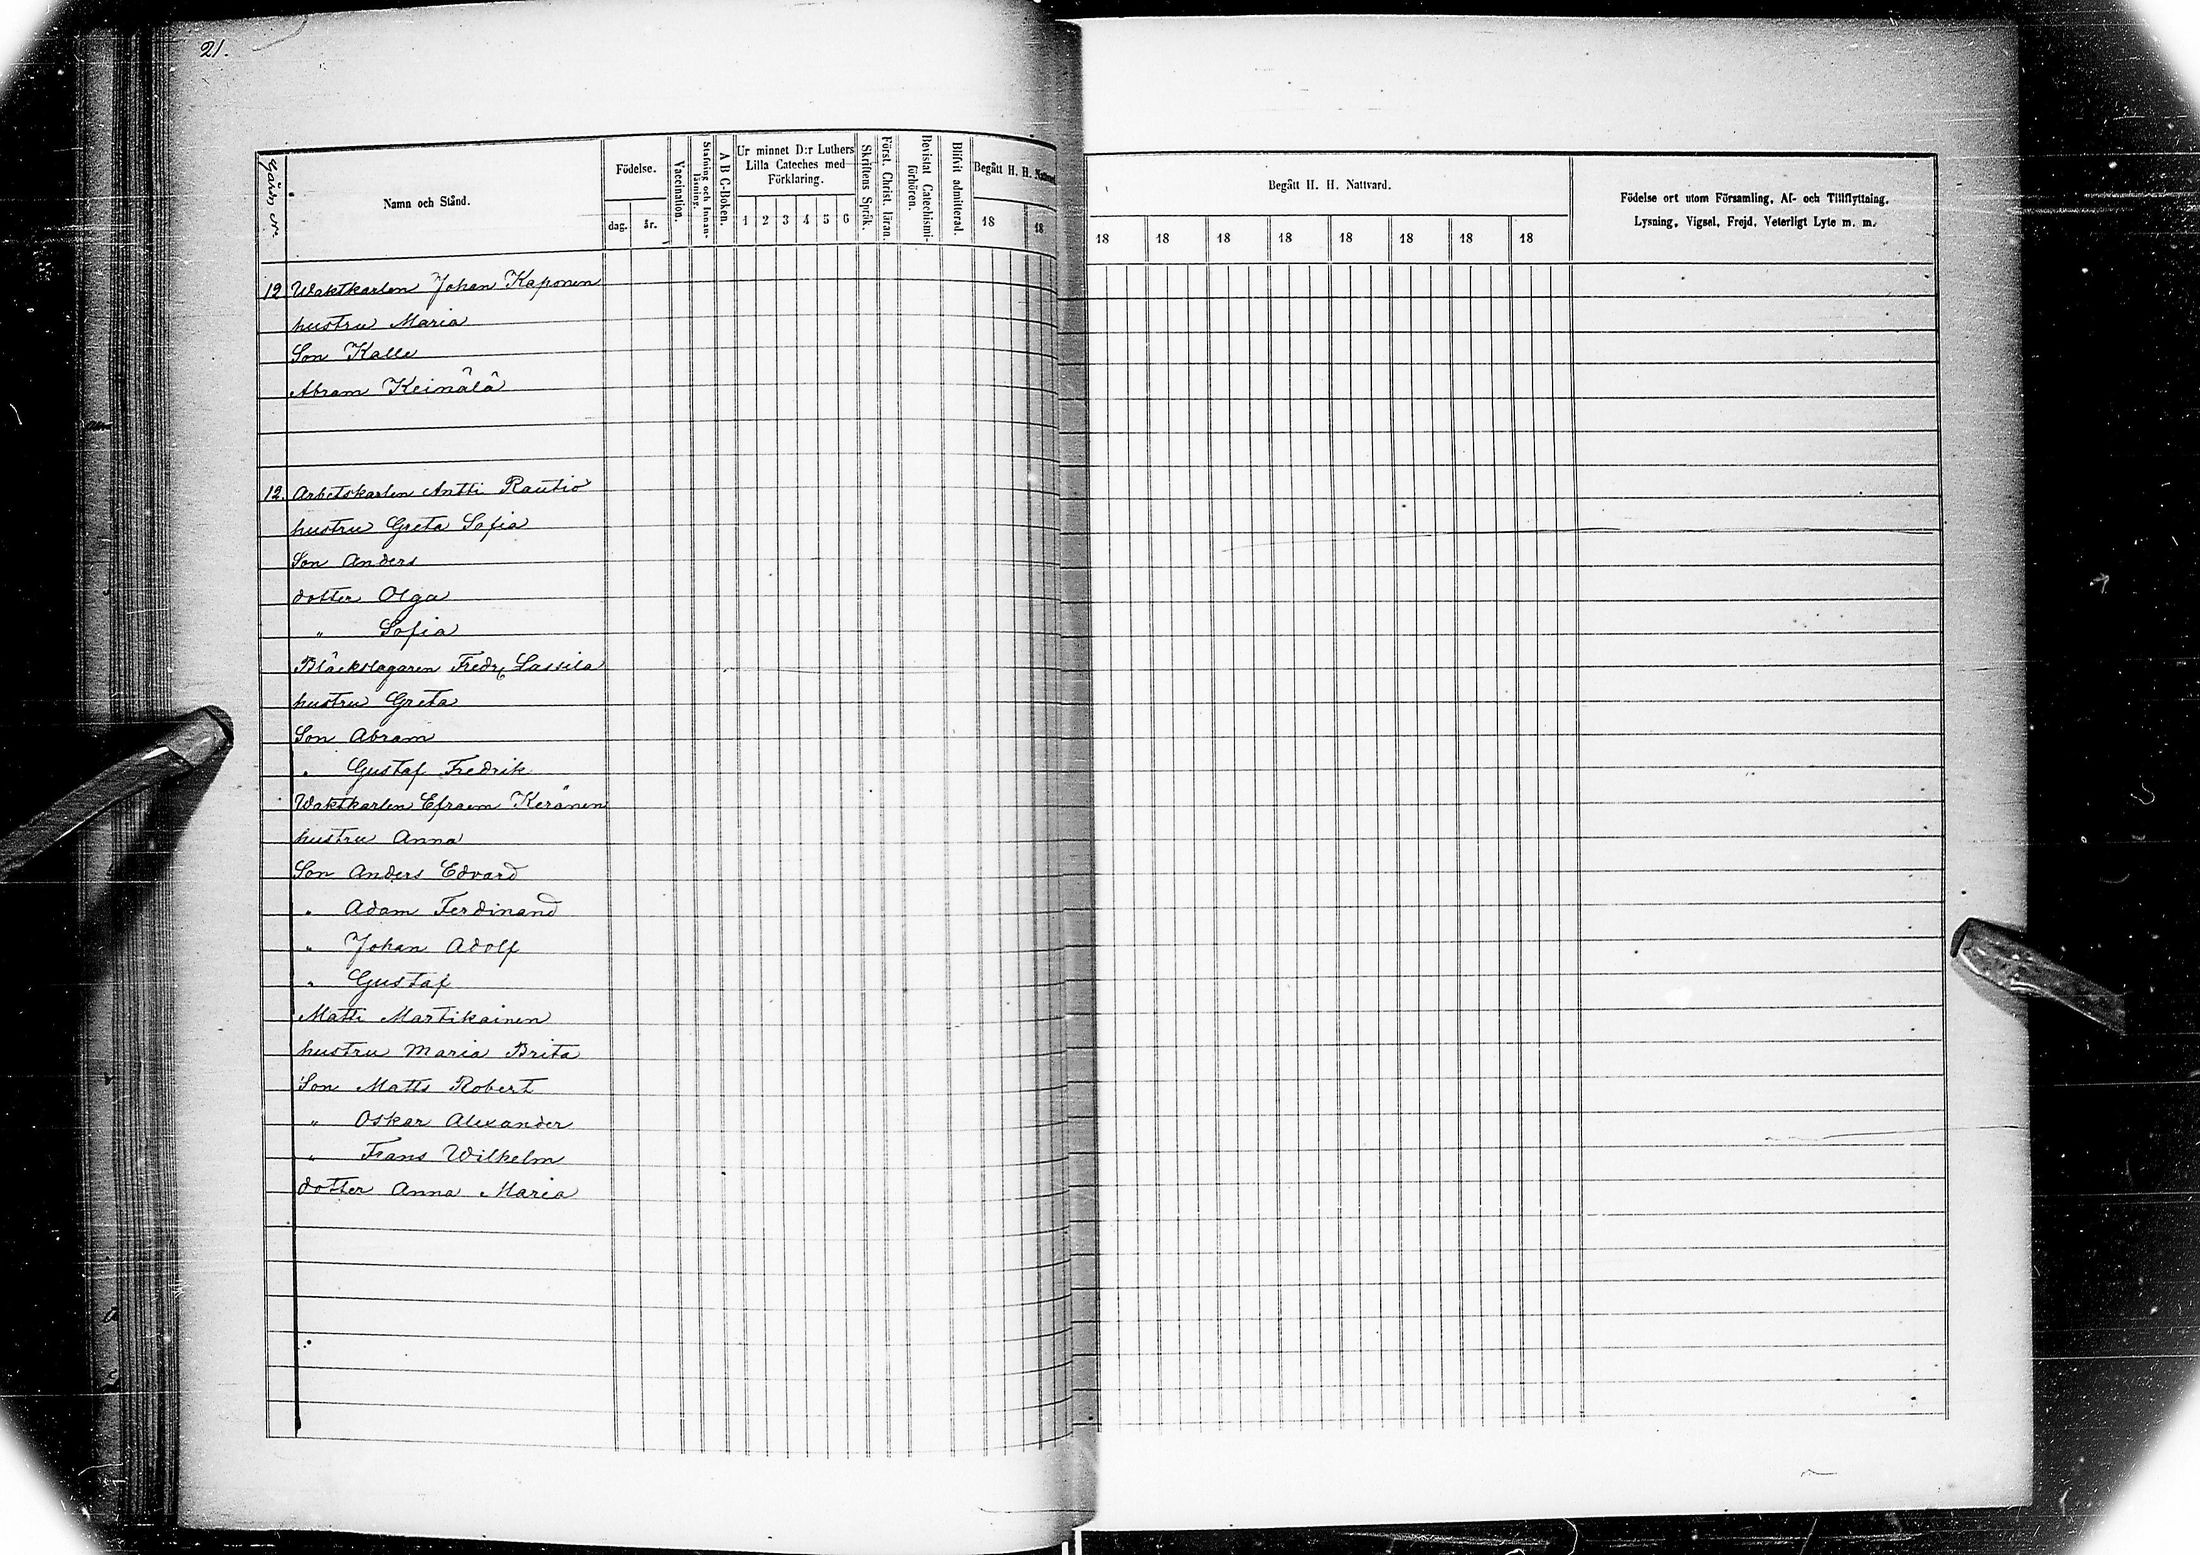 21.
Gårds No.
Namn och Stånd.
Födelse.
dag.
år.
Vaccination.
Stafning och Innan-läsning.
A B C-Boken.
Ur minnet D:r Luthers
Lilla Cateches med
Förklaring.
1 2 3 4 5 6
Skriftens Språk.
Först. Christ. läran.
Bevistat Catechismi-förhören.
Blifvit admitterad.
Begått H. H. Nattvard
18 18
Begått H. H. Nattvard.
18 18 18 18 18 18 18 18
Födelse ort utom Församling, Af- och Tillflyttning,
Lysning, Vigsel, Frejd, Veterligt Lyte m. m.
12 Waktkarlen Johan Kaponen
hustru Maria
Son Kalle
Abram Keinälä
12. Arbetskarlen Antti Rautio
hustru Greta Sofia
Son Anders
dotter Olga
" Sofia
Bläckslagaren Fredr Lassila
hustru Greta
Son Abram
" Gustaf Fredrik
Waktkarlen Efraem Keränen
hustru Anna
Son Anders Edvard
" Adam Ferdinand
" Johan Adolf
" Gustaf
Matti Martikainen
hustru Maria Brita
Son Matts Robert
" Oskar Alexander
" Frans Wilhelm
dotter Anna Maria